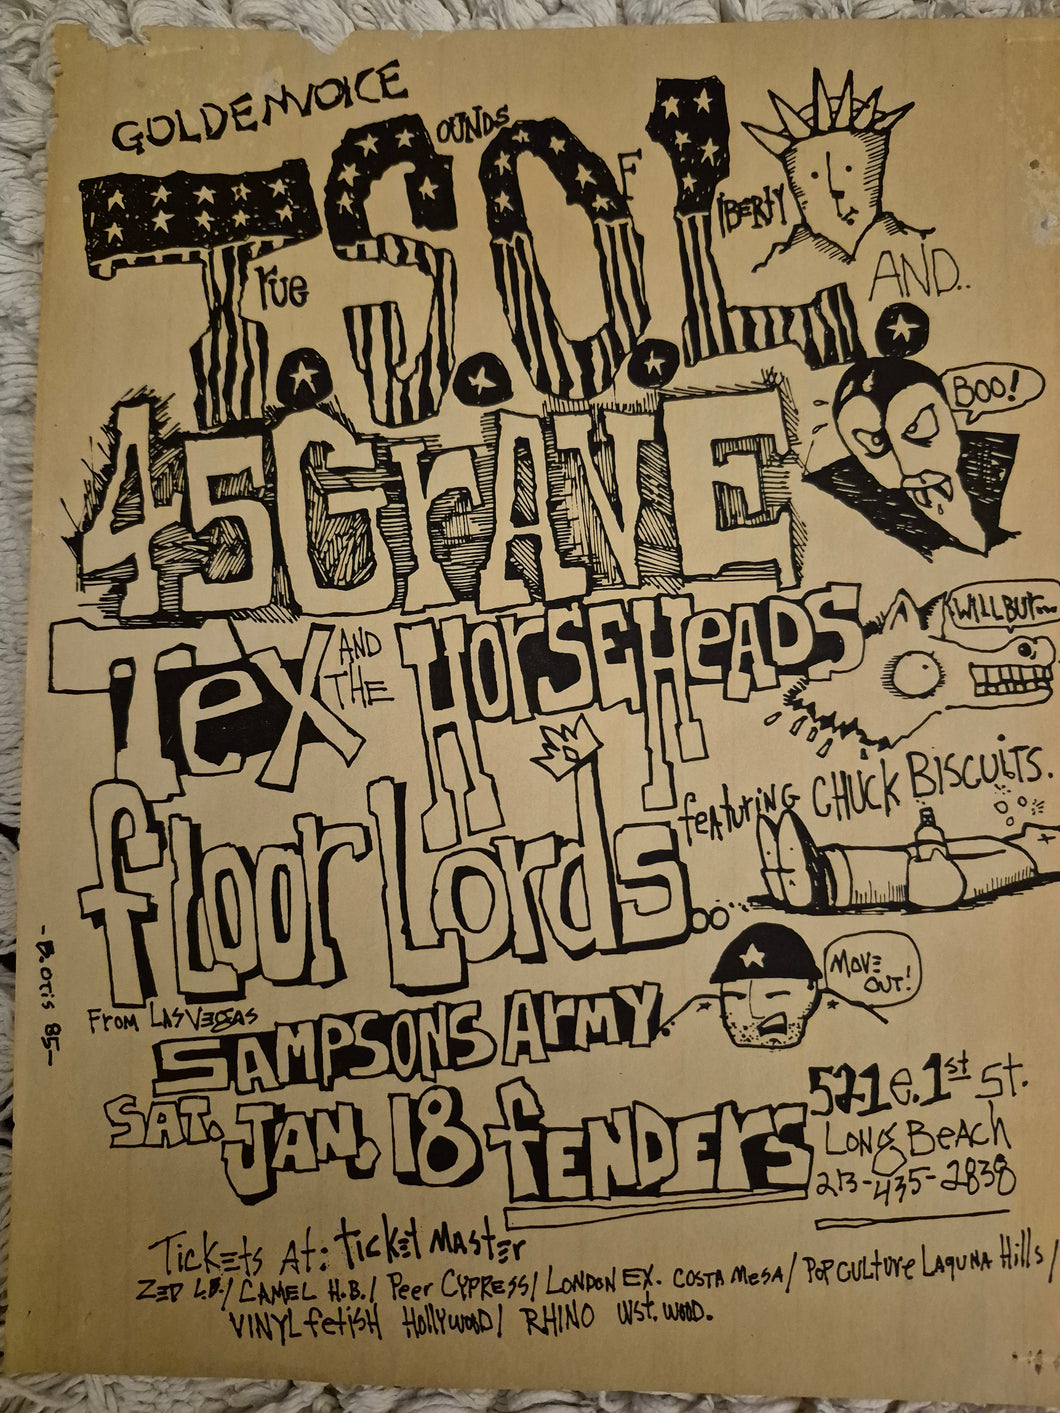 GOLDENVOICE
T.S.O.L.
rue
OUNDS
F
IBERTY
AND..
45GrAVE
BOO!
Tex AND THE HOrSEHeADS
WILLBUr...
flOOr LOrdS...
feATURING CHUCK BISCUITS.
MOVE OUT!
From LASVEGAS
SAMPSONS ArMY.
-B. OTIS 85-
SAT. JAN. 18 fENDErS
521 e. 1st St.
LONG BeACH
213-435-2838
TICKETS AT: TICKET MASTEr
ZED L.B./ CAMEL H.B./ Peer CYPRESS/ LONDON EX. COSTA MESA/ POPCULTUre LAQUNA Hills/
VINYL fETISH HOLLYWOOD/ RHINO WST. WOOD.